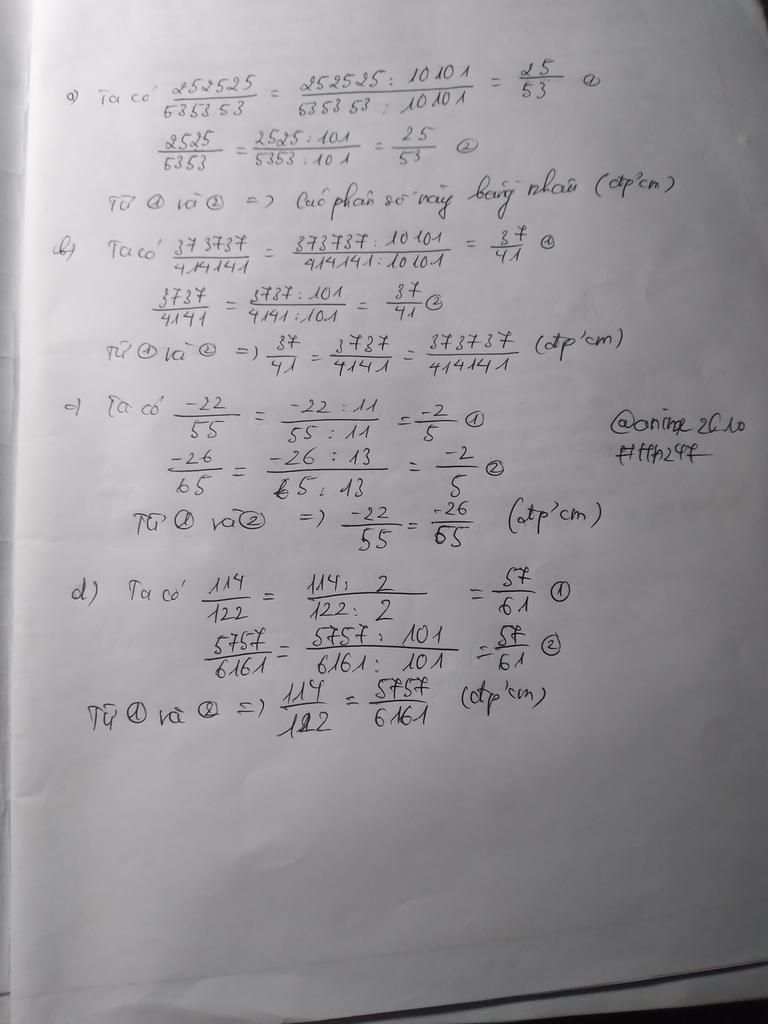 a) Ta có 252525/535353 = 252525 : 10101/535353 : 10101 = 25/53 ①
2525/5353 = 2525 : 101/5353 : 101 = 25/53 ②
Từ ① và ② => Các phân số này bằng nhau (đpcm)
b) Ta có 373737/414141 = 373737 : 10101/414141 : 10101 = 37/41 ①
3737/4141 = 3737 : 101/4141 : 101 = 37/41 ②
Từ ① và ② => 37/41 = 3737/4141 = 373737/414141 (đpcm)
c) Ta có -22/55 = -22 : 11/55 : 11 = -2/5 ①
-26/65 = -26 : 13/65 : 13 = -2/5 ②
Từ ① và ② => -22/55 = -26/65 (đpcm)
d) Ta có 114/122 = 114 : 2/122 : 2 = 57/61 ①
5757/6161 = 5757 : 101/6161 : 101 = 57/61 ②
Từ ① và ② => 114/122 = 5757/6161 (đpcm)